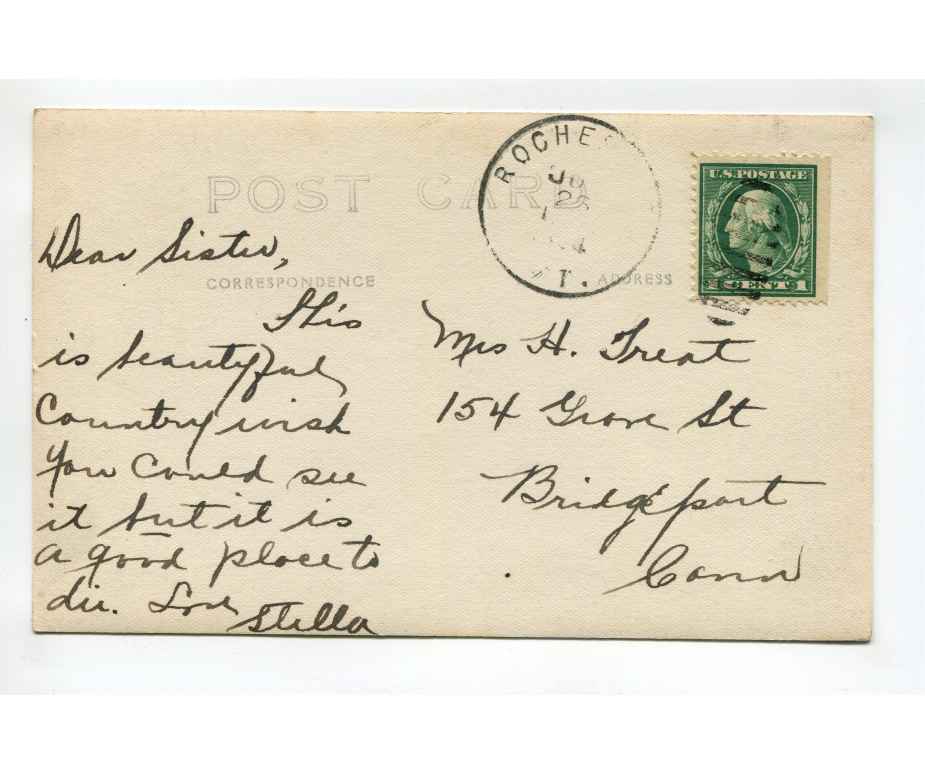 POST CARD
ROCHE
JU
2
T.
U.S. POSTAGE
1 CENT 1
CORRESPONDENCE
ADDRESS
Dear Sister,
This
is beautyful
Country wish
you could see
it but it is
a good place to
die. Love
Stella
Mrs H. Treat
154 Grove St
Bridgeport
Conn